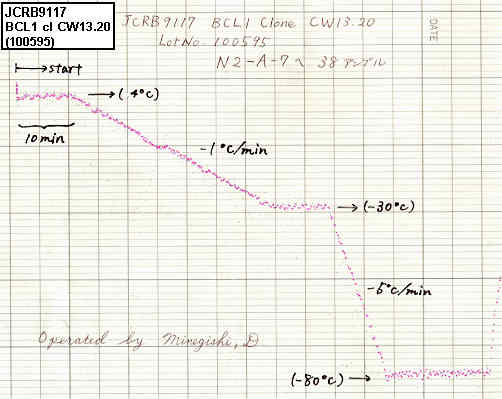 JCRB9117
BCL1 cl CW13.20
(100595)
JCRB9117 BCL1 Clone CW13.20
Lot No. 100595
N2-A-7へ 38アンプル
DATE
start
(4°C)
10min
-1°C/min
(-30°C)
-5°C/min
Operated by Minegishi, D
(-80°C)